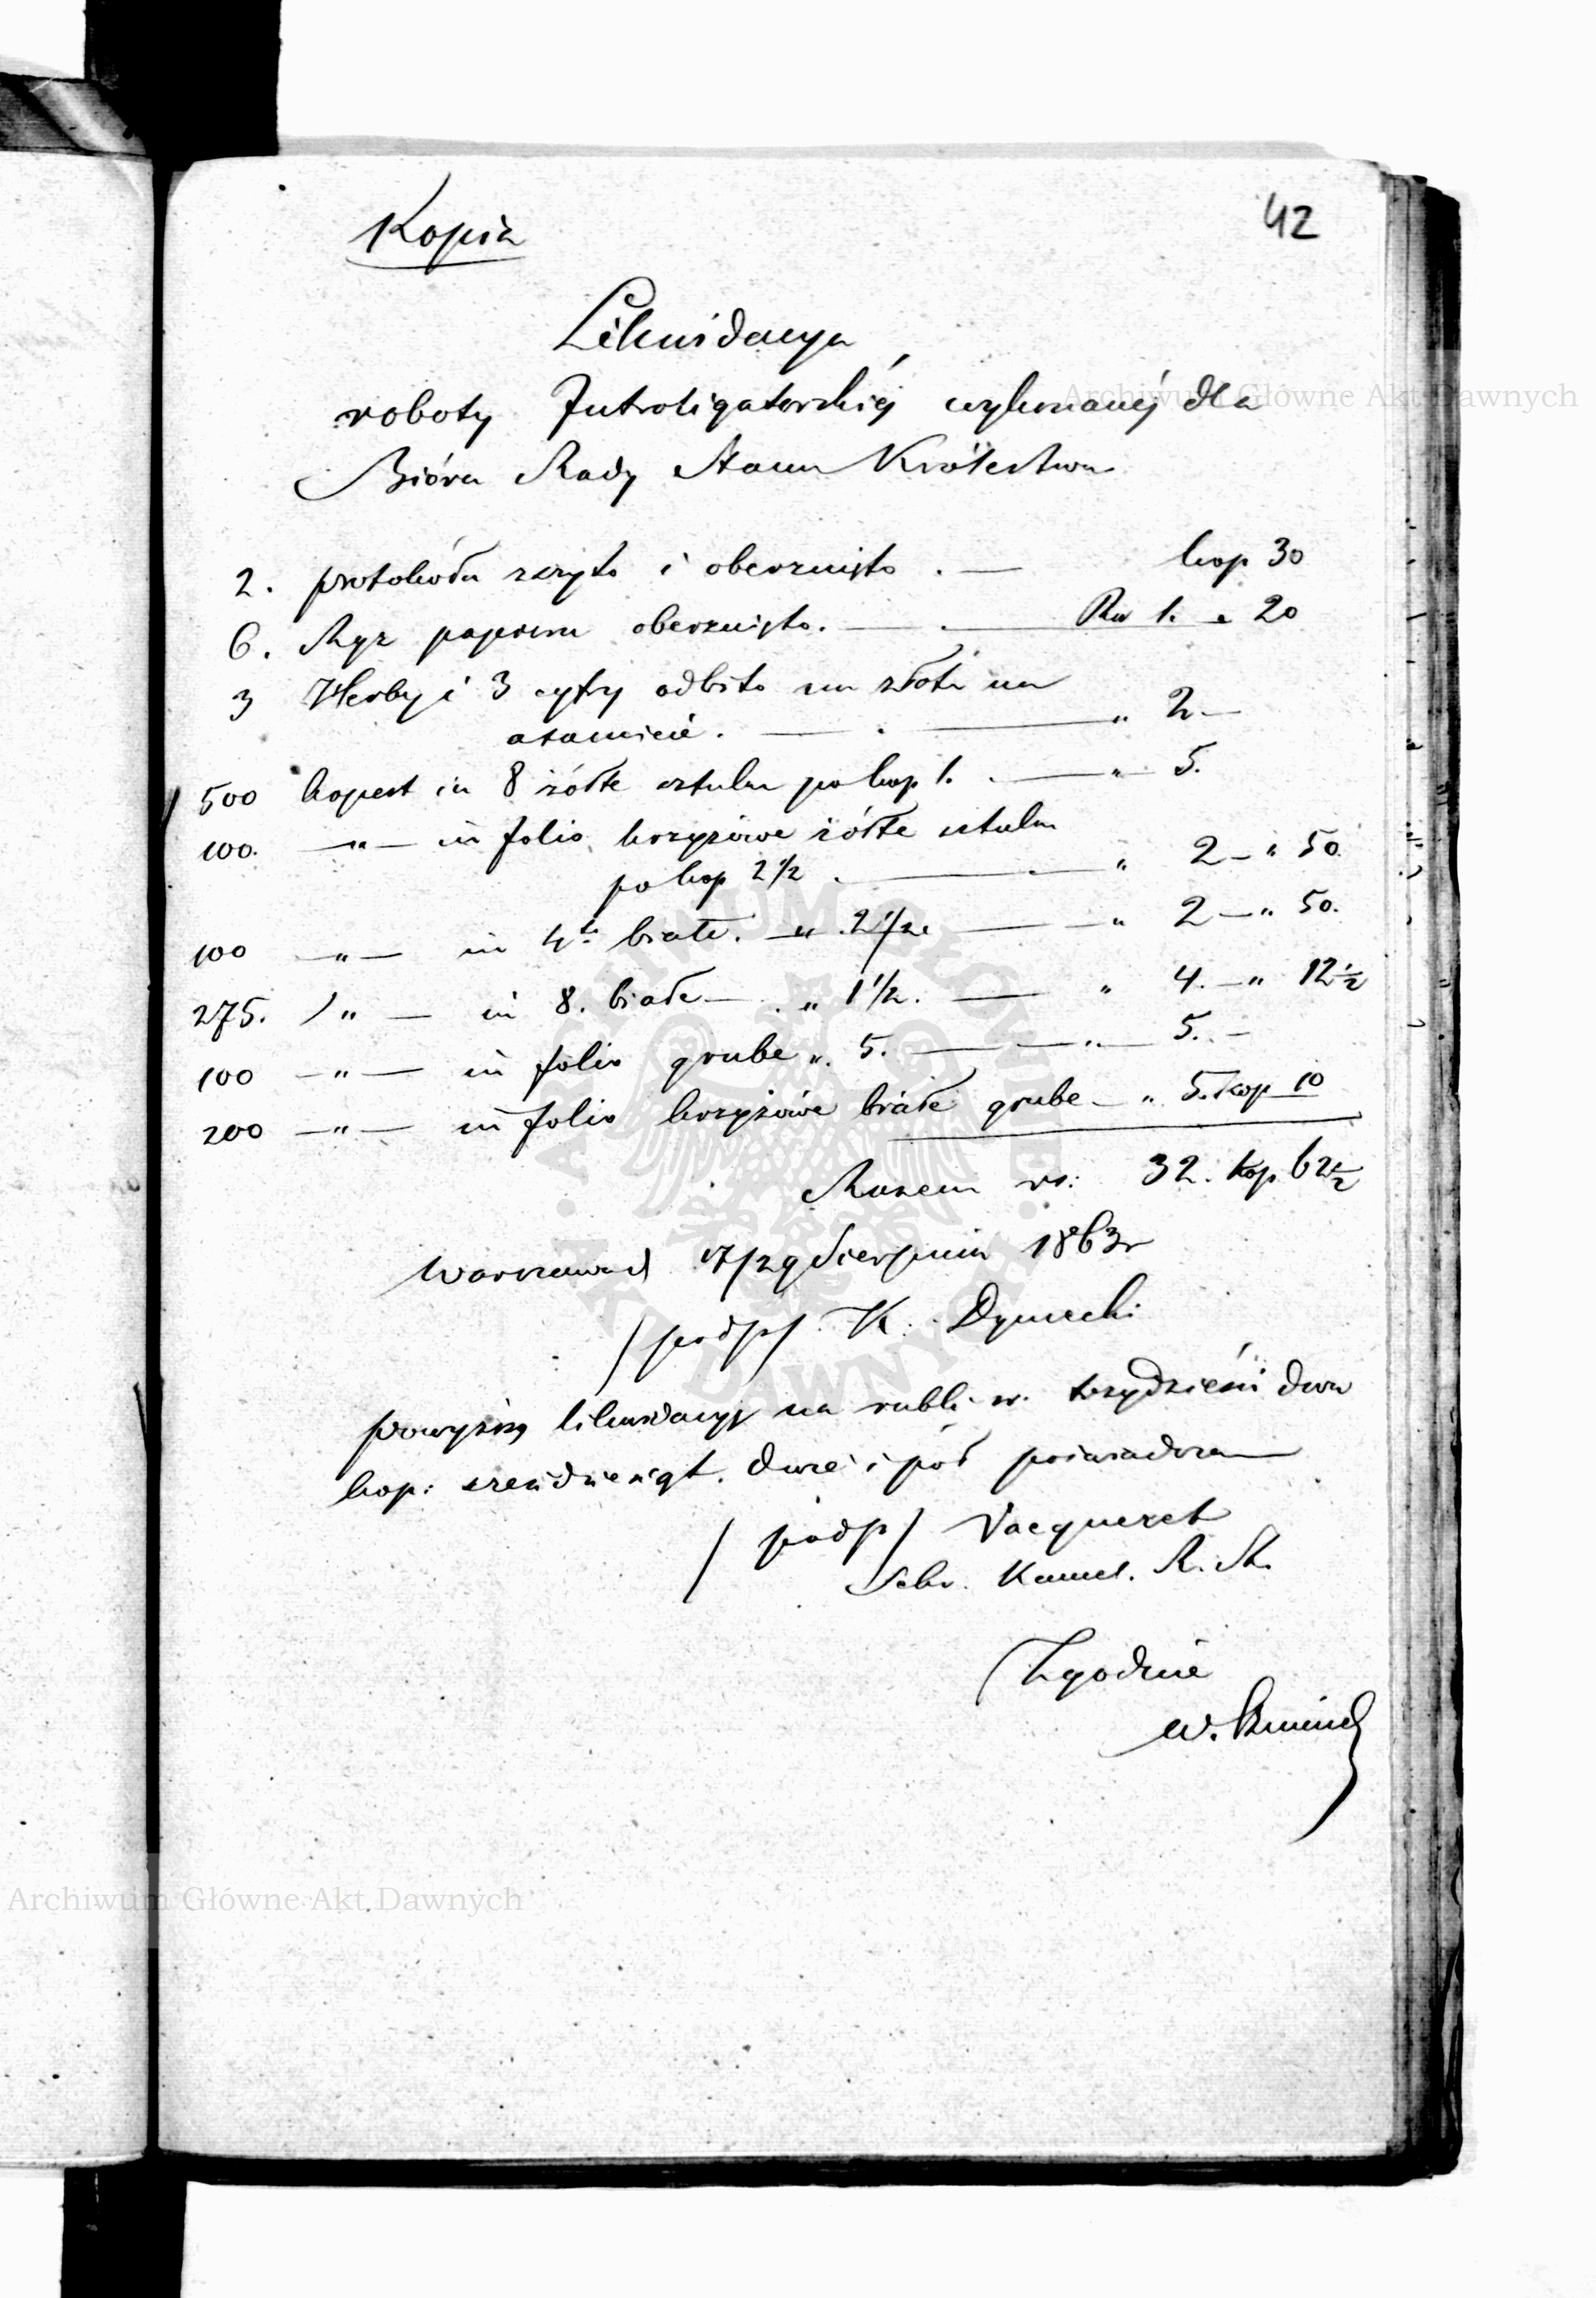 42
Kopia
Likwidacya
roboty Introligatorskiéj wykonanéj dla
Bióra Rady Stanu Królestwa
2. protokóła zszyto i oberznięto . — kop 30
6. Ryz papieru oberznięto. — . — Rs 1. " 20
3 Herby i 3 cyfry odbito na złoto na
axamicie. — . — " 2 —
500 kopert in 8 żółte sztuka po kop 1. . — " 5.
100. — " — in folio krzyżowe żółte sztuka
po kop 2 1/2 . — . — " 2 — " 50
100 — " — in 4to białe. — " . 2 1/2. — — " 2 — " 50.
275. " — in 8. białe — . " 1 1/2. — " 4. — " 12 1/2
100 — " — in folio grube ". 5. — — " — 5. —
200 — " — in folio krzyżowe białe grube — " 5. kop 10
Razem rs: 32. kop 62 1/2
Warszawa d 17/29 Sierpnia 1863 r
/podp/ K. Dymecki
powyższą likwidacyę na rubli sr. trzydzieści dwa
kop: sześćdziesiąt. dwie i pół poświadczam
/podp/ Vacqueret
Sekr. Kancel. R. St.
Zgodnie
Archiwum Główne Akt Dawnych
ARCHIWUM GŁÓWNE AKT DAWNYCH
Archiwum Główne Akt Dawnych